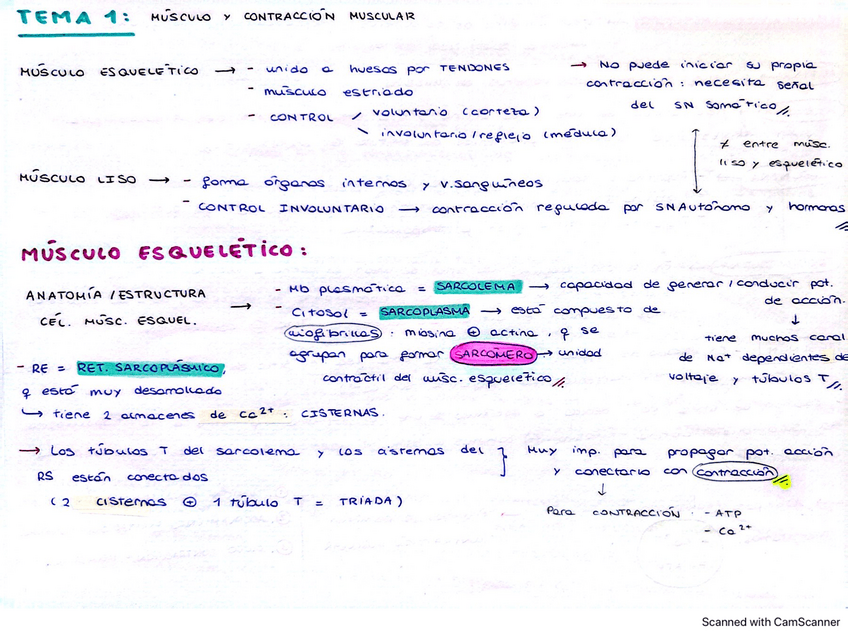 TEMA 1: MÚSCULO Y CONTRACCIÓN MUSCULAR
MÚSCULO ESQUELÉTICO → - unido a huesos por TENDONES
- músculo estriado
- CONTROL / voluntario (corteza)
\ involuntario/reflejo (médula)
→ No puede iniciar su propia
contracción: necesita señal
del SN somático
≠ entre músc.
liso y esquelético
MÚSCULO LISO → - forma órganos internos y v. sanguíneos
- CONTROL INVOLUNTARIO → contracción regulada por SNAutónomo y hormonas
MÚSCULO ESQUELÉTICO:
ANATOMÍA/ESTRUCTURA
CÉL. MÚSC. ESQUEL. →
- Mb plasmática = SARCOLEMA → capacidad de generar/conducir pot.
de acción.
↓
tiene muchos canal
de Na+ dependientes de
voltaje y túbulos T
- Citosol = SARCOPLASMA → está compuesto de
miofibrillas: miosina ⊕ actina, q se
agrupan para formar SARCÓMERO → unidad
contráctil del músc. esquelético
- RE = RET. SARCOPLÁSMICO,
q está muy desarrollado
↳ tiene 2 almacenes de Ca2+: CISTERNAS.
→ Los túbulos T del sarcolema y las cisternas del
RS están conectados
(2 cisternas ⊕ 1 túbulo T = TRIADA)
Muy imp. para propagar pot. acción
y conectarlo con contracción
↓
Para CONTRACCIÓN: - ATP
- Ca2+
Scanned with CamScanner